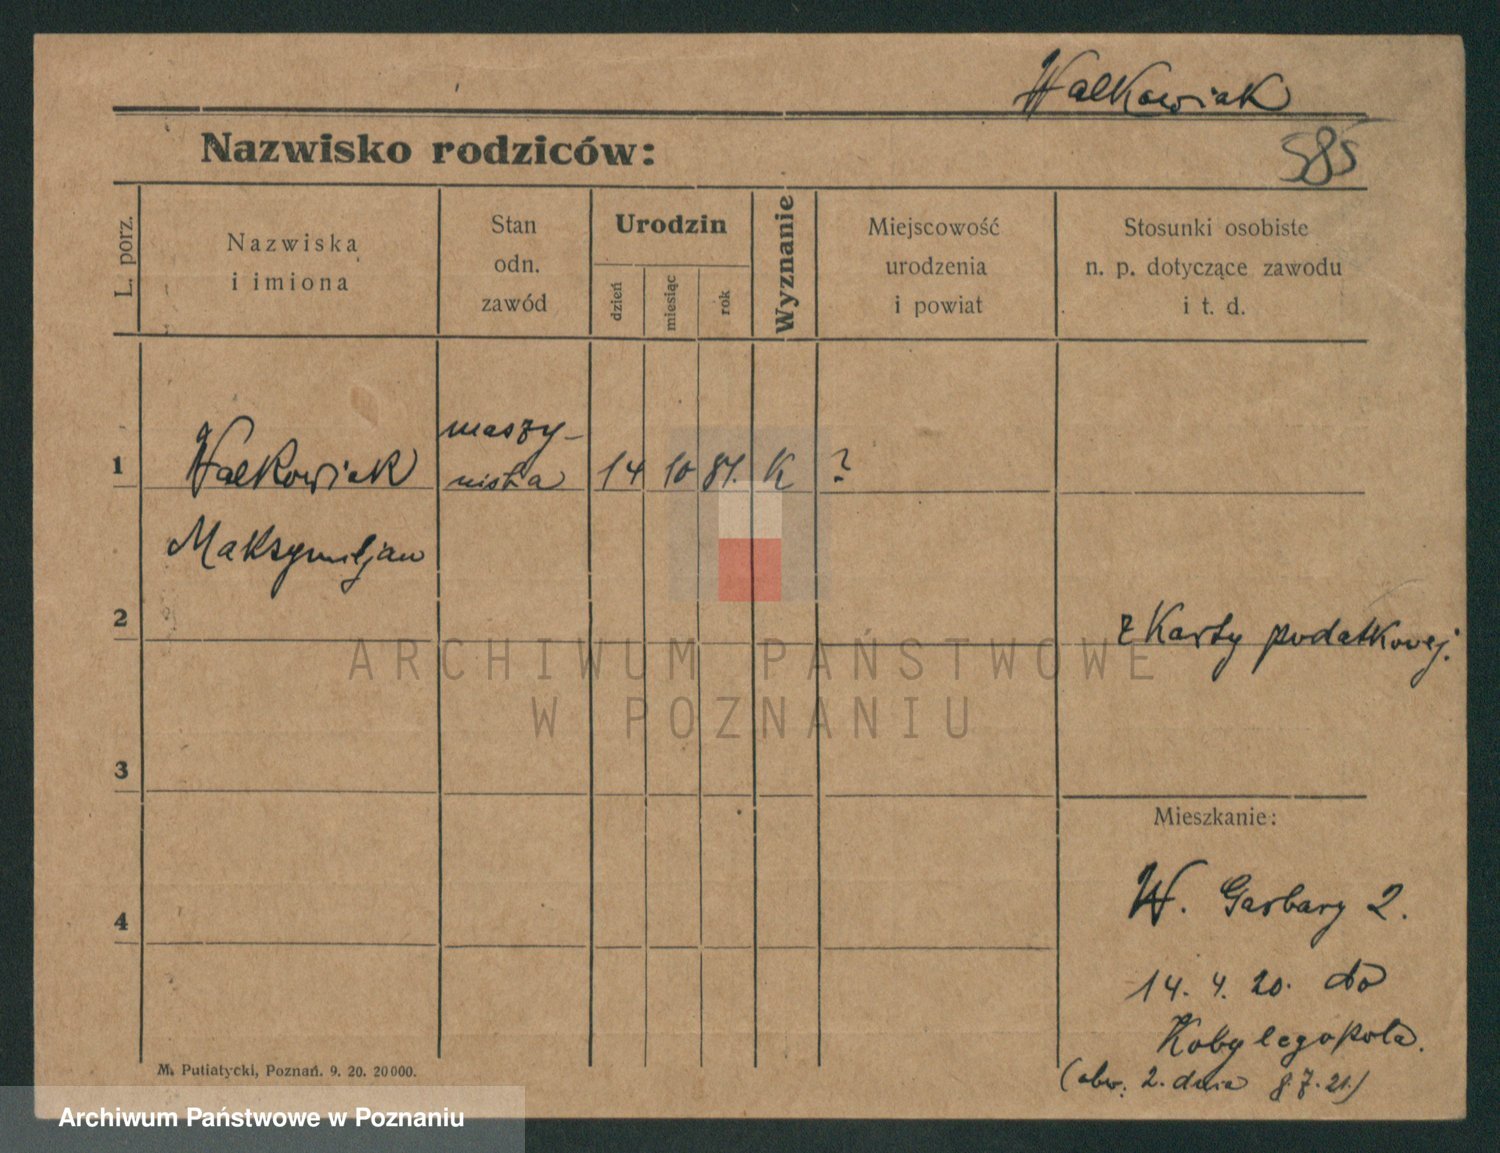 Walkowiak
Nazwisko rodziców:
585
L. porz.
Nazwiska
i imiona
Stan
odn.
zawód
Urodzin
dzień
miesiąc
rok
Wyznanie
Miejscowość
urodzenia
i powiat
Stosunki osobiste
n. p. dotyczące zawodu
i t. d.
1
Walkowiak
maszy-
nista
14
10
87.
K
?
Maksymiljan
2
z Karty podatkowej.
ARCHIWUM PAŃSTWOWE
W POZNANIU
3
Mieszkanie:
4
W. Garbary 2.
14. 4. 20. do
Kobylegopola.
(obw. 2. dnia 8.7.21.)
M. Putiatycki, Poznań. 9. 20. 20000.
Archiwum Państwowe w Poznaniu